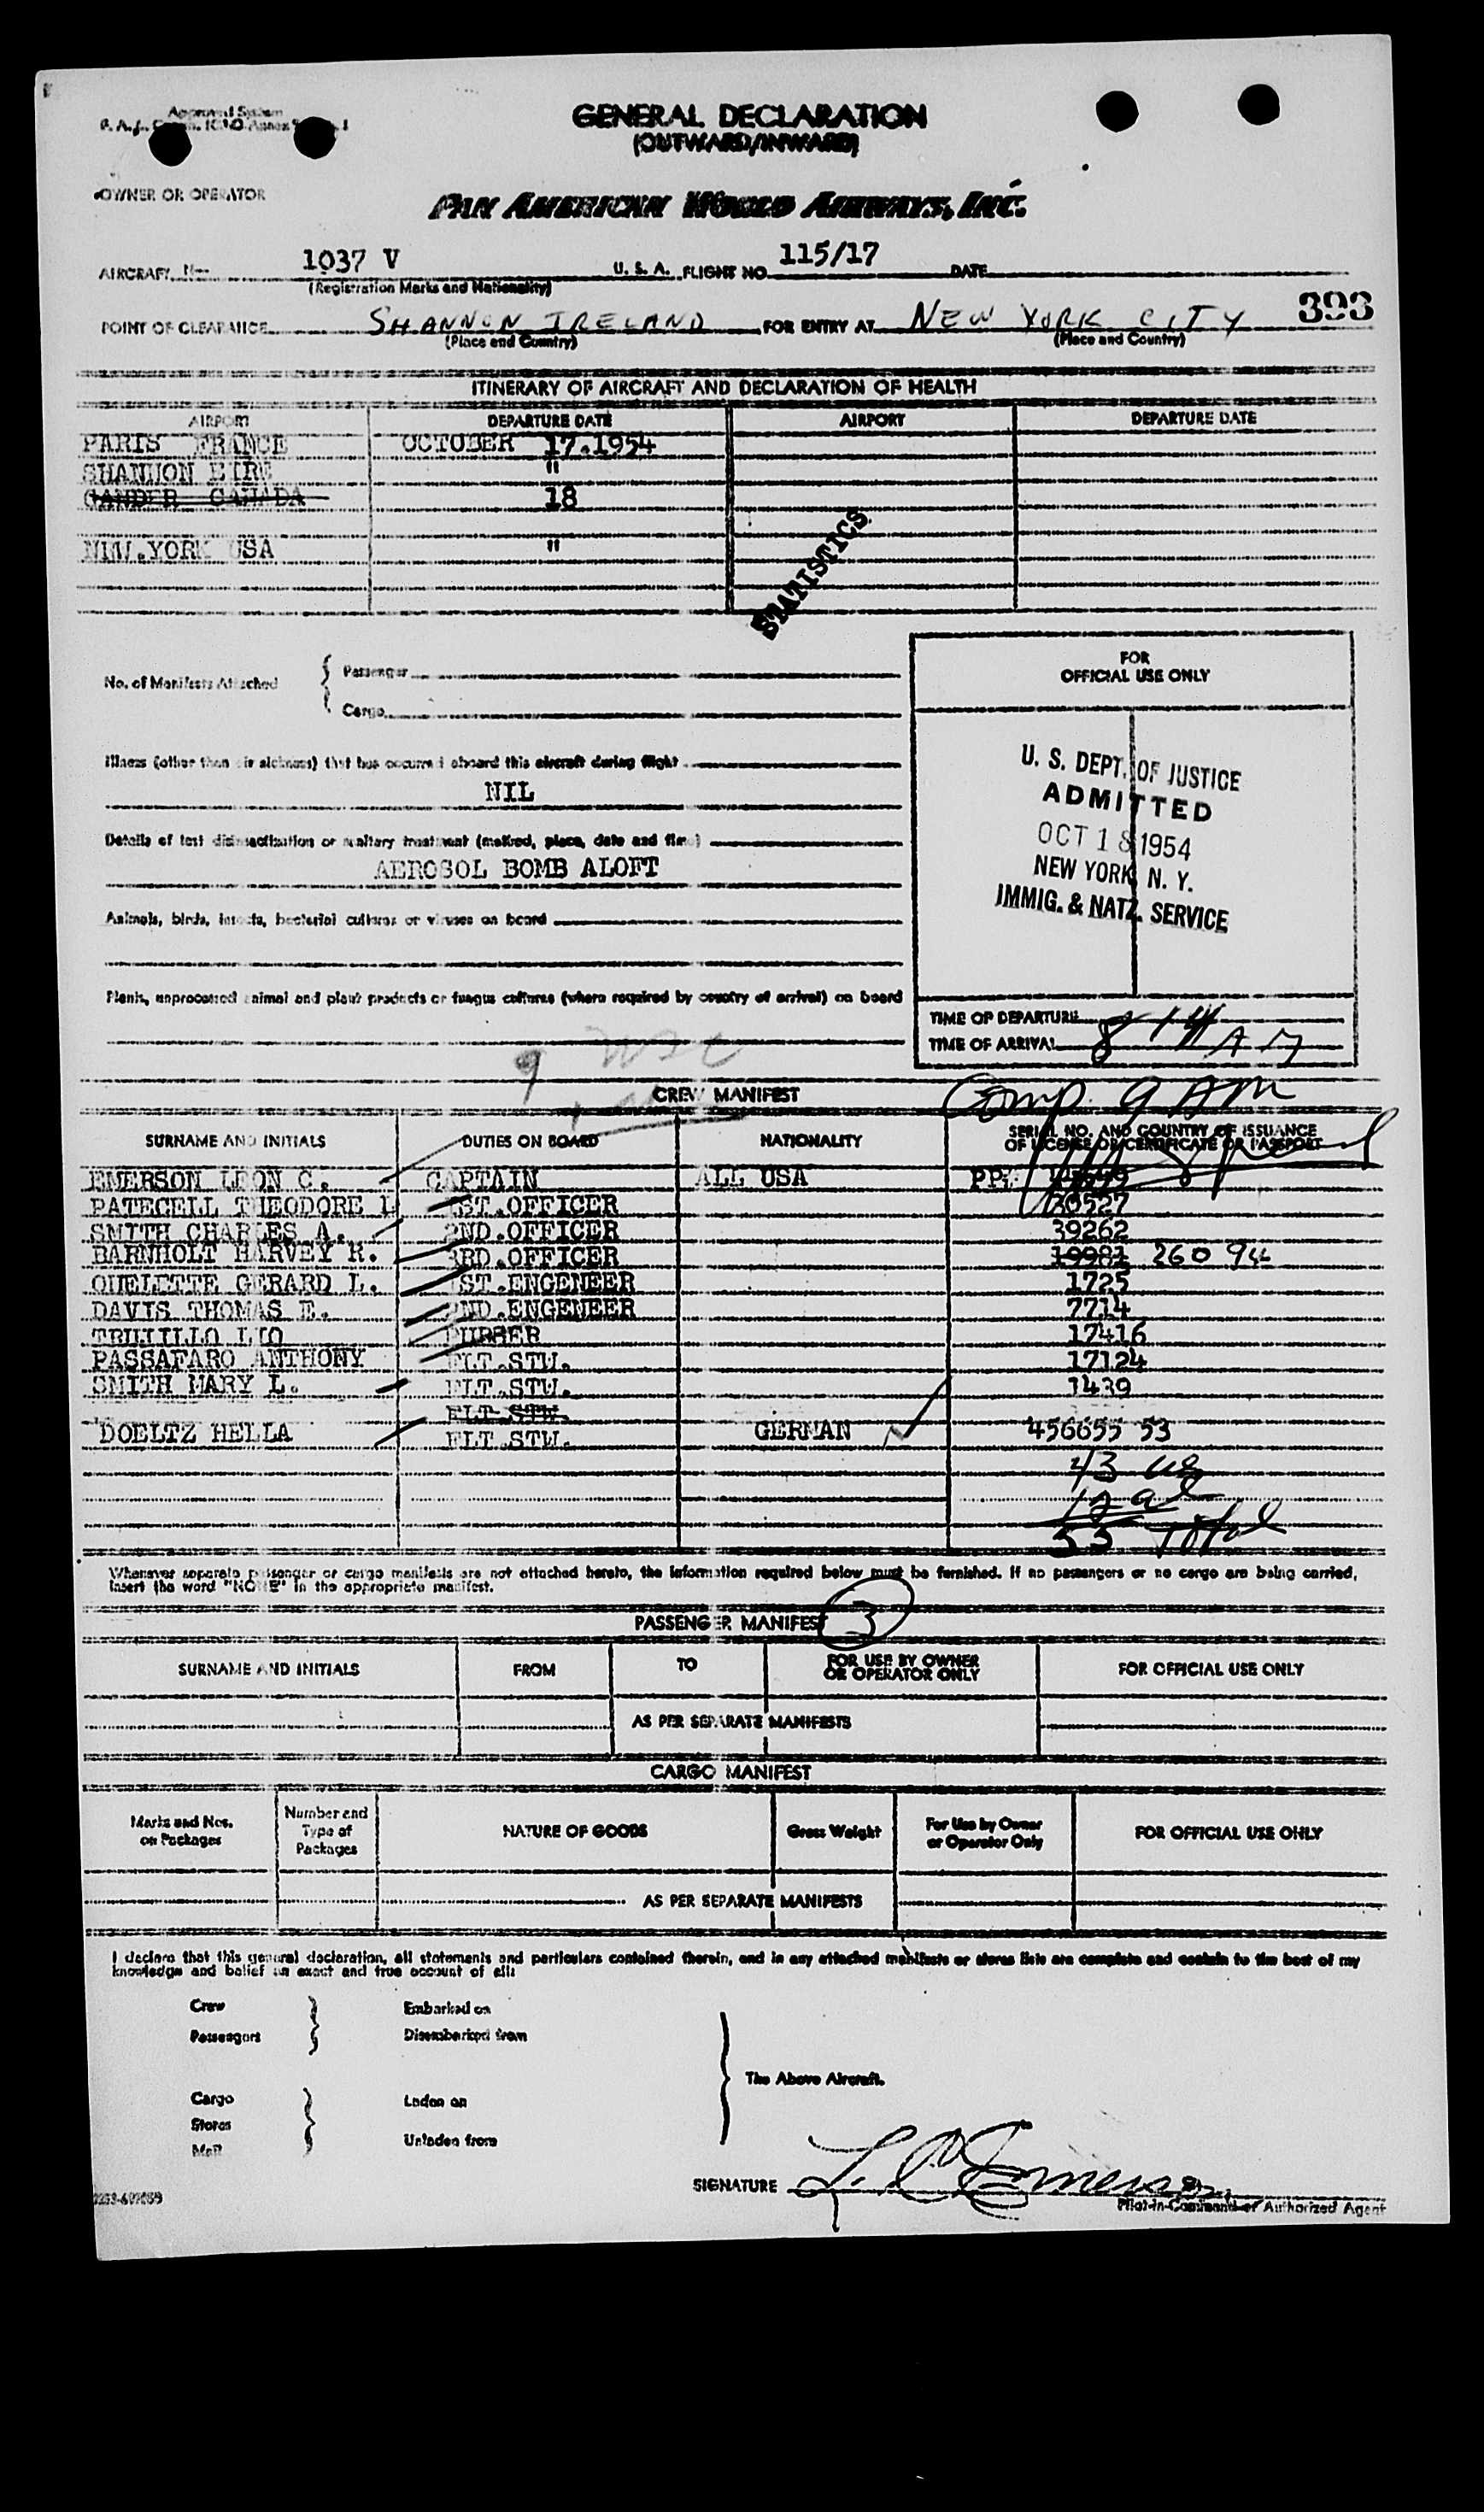 Approved System
GENERAL DECLARATION
(OUTWARD/INWARD)
OWNER OR OPERATOR
PAN AMERICAN WORLD AIRWAYS, INC.
AIRCRAFT N— 1037 V U. S. A. FLIGHT NO. 115/17 DATE
(Registration Marks and Nationality)
393
POINT OF CLEARANCE SHANNON IRELAND FOR ENTRY AT NEW YORK CITY
(Place and Country) (Place and Country)
ITINERARY OF AIRCRAFT AND DECLARATION OF HEALTH
AIRPORT DEPARTURE DATE AIRPORT DEPARTURE DATE
PARIS FRANCE OCTOBER 17.1954
SHANNON EIRE "
GANDER CANADA 18
NEW.YORK USA "
STATISTICS
FOR
OFFICIAL USE ONLY
No. of Manifests Attached { Passenger
Cargo
Illness (other than air sickness) that has occurred aboard this aircraft during flight
NIL
U. S. DEPT. OF JUSTICE
ADMITTED
OCT 18 1954
NEW YORK N. Y.
IMMIG. & NATZ. SERVICE
Details of last disinsectization or sanitary treatment (method, place, date and time)
AEROSOL BOMB ALOFT
Animals, birds, insects, bacterial cultures or viruses on board
Plants, unprocessed animal and plant products or fungus cultures (where required by country of arrival) on board
TIME OF DEPARTURE
TIME OF ARRIVAL 8 14 AM
9
CREW MANIFEST
Comp. 9 AM
SURNAME AND INITIALS DUTIES ON BOARD NATIONALITY SERIAL NO. AND COUNTRY OF ISSUANCE
OF LICENSE OR CERTIFICATE OR PASSPORT
EMERSON LEON C. CAPTAIN ALL USA PP#
PATECELL THEODORE L 1ST.OFFICER 30527
SMITH CHARLES A. 2ND.OFFICER 39262
BARNHOLT HARVEY R. 3RD.OFFICER 19981 26094
OUELETTE GERARD L. 1ST.ENGENEER 1725
DAVIS THOMAS E. 2ND.ENGENEER 7714
TRUJILLO LIO PURSER 17416
PASSAFARO ANTHONY FLT.STW. 17124
SMITH MARY L. FLT.STW. 1439
FLT STW.
DOELTZ HELLA FLT.STW. GERMAN 456655 53
43 us
12 al
55 Total
Whenever separate passenger or cargo manifests are not attached hereto, the information required below must be furnished. If no passengers or no cargo are being carried,
insert the word "NONE" in the appropriate manifest.
PASSENGER MANIFEST 3
SURNAME AND INITIALS FROM TO FOR USE BY OWNER
OR OPERATOR ONLY FOR OFFICIAL USE ONLY
AS PER SEPARATE MANIFESTS
CARGO MANIFEST
Marks and Nos.
on Packages Number and
Type of
Packages NATURE OF GOODS Gross Weight For Use by Owner
or Operator Only FOR OFFICIAL USE ONLY
AS PER SEPARATE MANIFESTS
I declare that this general declaration, all statements and particulars contained therein, and in any attached manifests or stores lists are complete and contain to the best of my
knowledge and belief an exact and true account of all:
Crew Embarked on
Passengers Disembarked from
The Above Aircraft.
Cargo Laden on
Stores
Mail Unladen from
SIGNATURE L. C. Emerson
Pilot-in-Command or Authorized Agent